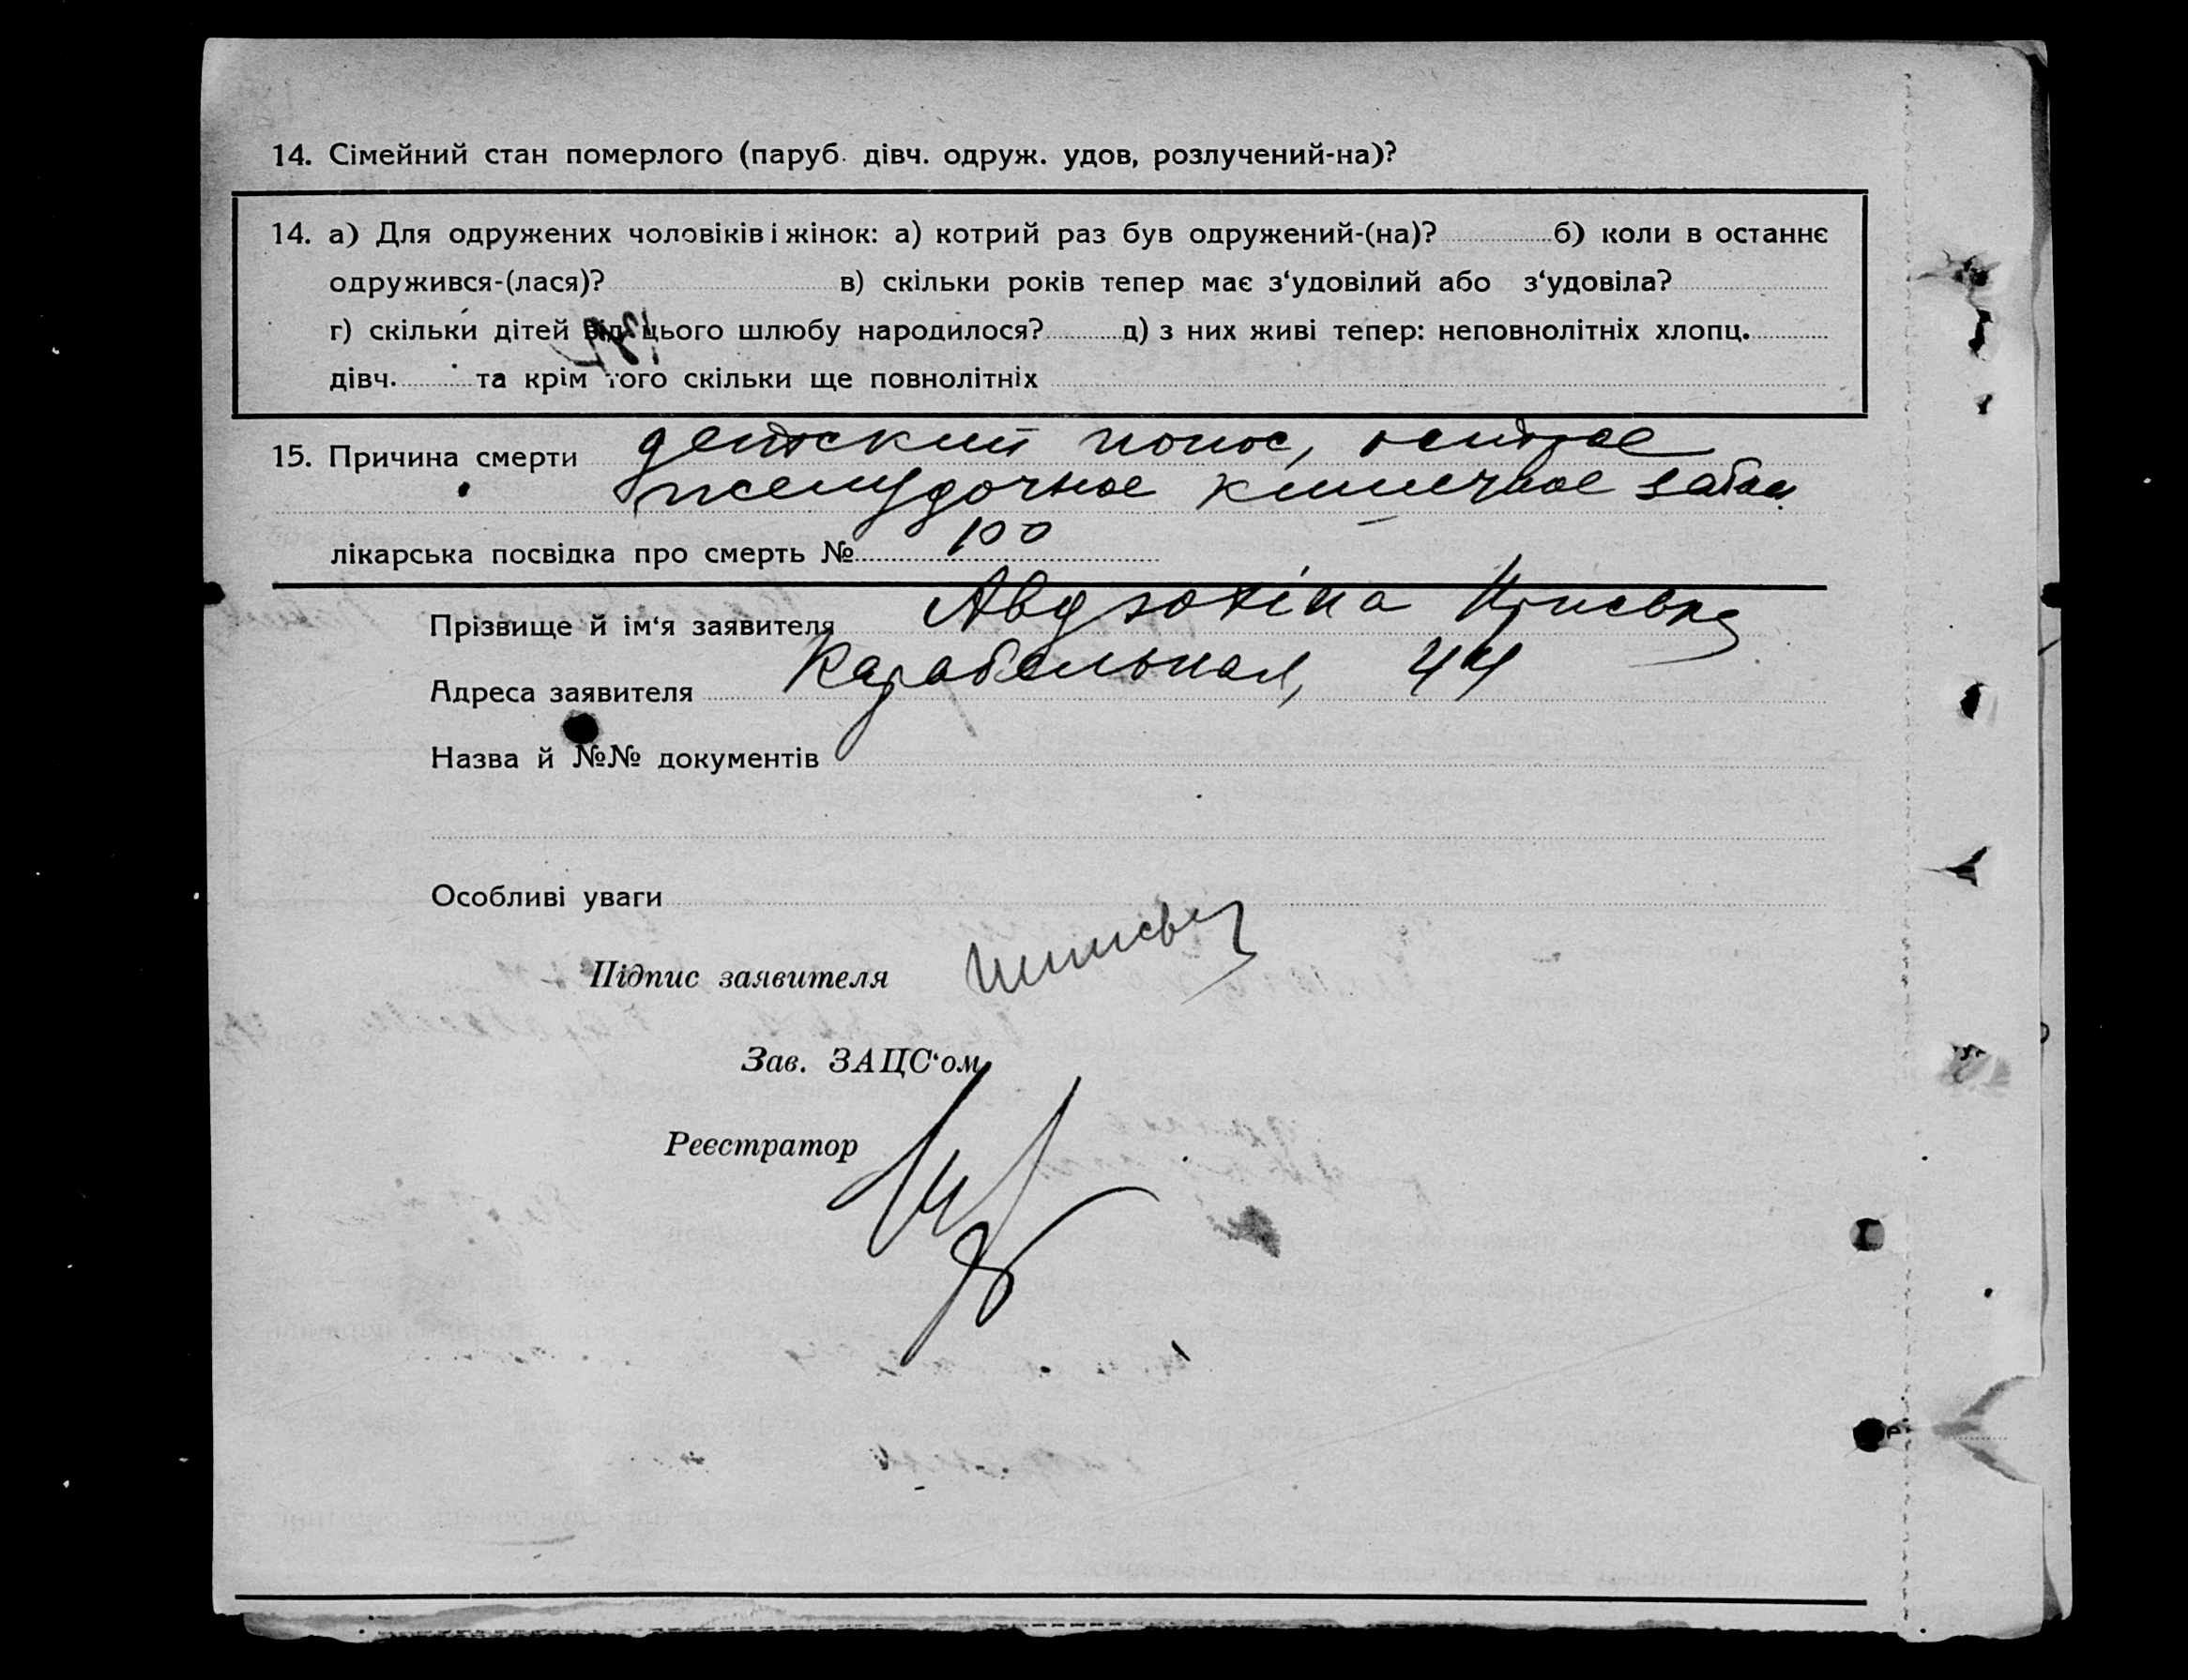 14. Сімейний стан померлого (паруб. дівч. одруж. удов, розлучений-на)?
14. а) Для одружених чоловіків і жінок: а) котрий раз був одружений-(на)? б) коли в останнє
одружився-(лася)? в) скільки років тепер має з‘удовілий або з‘удовіла?
г) скільки дітей від цього шлюбу народилося? д) з них живі тепер: неповнолітніх хлопц.
дівч. та крім того скільки ще повнолітніх
15. Причина смерти детский понос, острое
желудочное кишечное забол.
лікарська посвідка про смерть № 100
Прізвище й ім‘я заявителя
Адреса заявителя Карабельная, 44
Назва й №№ документів
Особливі уваги
Підпис заявителя
Зав. ЗАЦС‘ом
Реєстратор